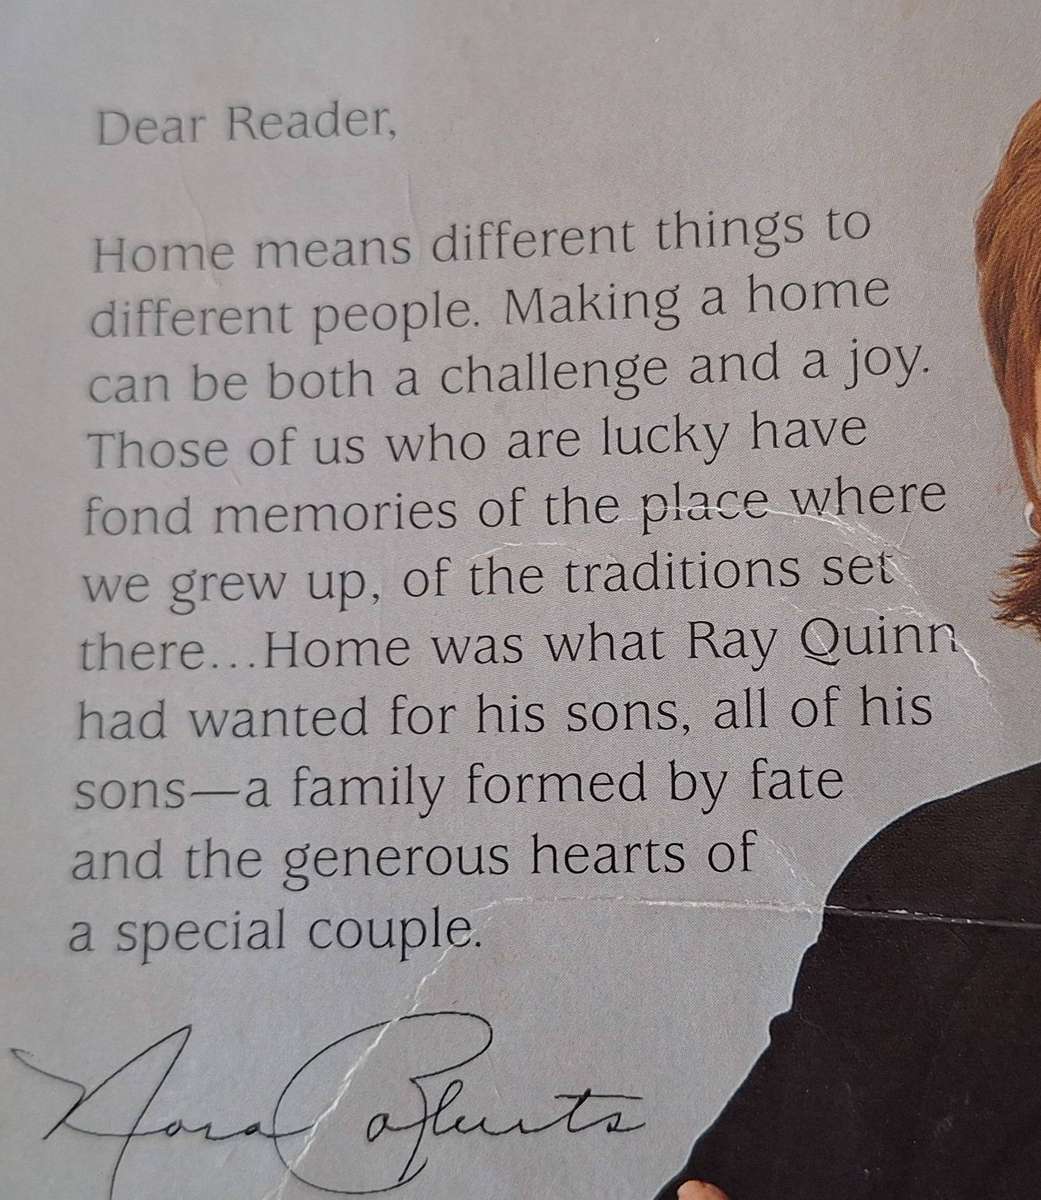 Dear Reader,
Home means different things to
different people. Making a home
can be both a challenge and a joy.
Those of us who are lucky have
fond memories of the place where
we grew up, of the traditions set
there...Home was what Ray Quinn
had wanted for his sons, all of his
sons—a family formed by fate
and the generous hearts of
a special couple.
Nora Roberts